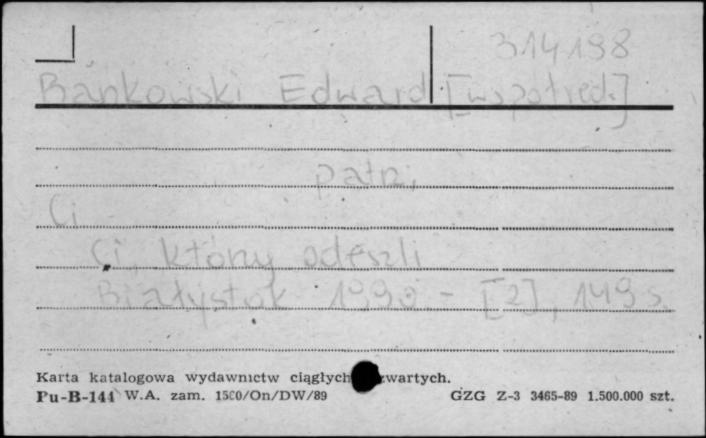 314198
Bańkowski Edward [współred.]
patrz,
Ci
Ci, którzy odeszli
Białystok 1990 - [2], 149 s.
Karta katalogowa wydawnictw ciągłych wartych.
Pu-B-144 W.A. zam. 1500/On/DW/89 GZG Z-3 3465-89 1.500.000 szt.